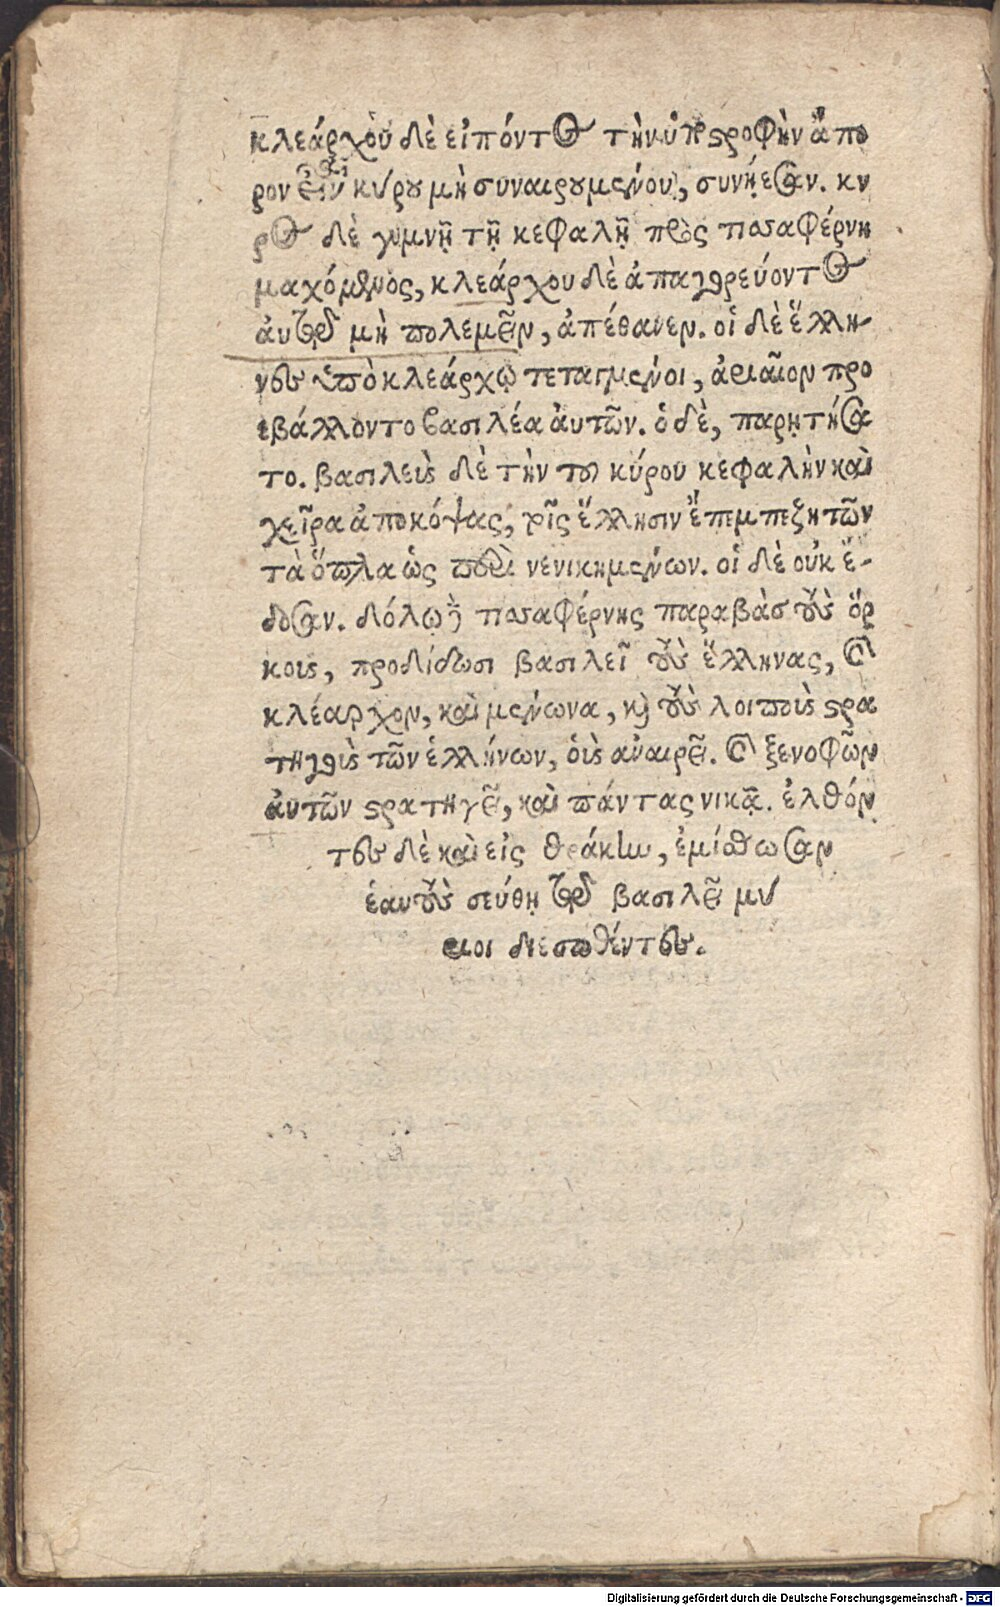 κλεάρχου δὲ εἰπόντος τὴν ὑποστροφὴν ἄπο
ρον εἶναι κύρου μὴ συναιρουμένου, συνῄεσαν. κυ
ρος δὲ γυμνῇ τῇ κεφαλῇ πρὸς τισσαφέρνη
μαχόμενος, κλεάρχου δὲ ἀπαγορεύοντος
αὐτῷ μὴ πολεμεῖν, ἀπέθανεν. οἱ δὲ ἕλλη-
νες ὑπὸ κλεάρχῳ τεταγμένοι, ἀριαῖον προ
εβάλλοντο βασιλέα αὐτῶν. ὁ δὲ, παρῃτήσα
το. βασιλεὺς δὲ τὴν τοῦ κύρου κεφαλὴν καὶ
χεῖρα ἀποκόψας, τοῖς ἕλλησιν ἔπεμπε ζητῶν
τὰ ὅπλα ὡς παρὰ νενικημένων. οἱ δὲ οὐκ ἔ-
δοσαν. δόλῳ δὲ τισσαφέρνης παραβὰς τοὺς ὅρ
κους, προδίδωσι βασιλεῖ τοὺς ἕλληνας, καὶ
κλέαρχον, καὶ μένωνα, καὶ τοὺς λοιποὺς στρα
τηγοὺς τῶν ἑλλήνων, οὓς ἀναιρεῖ. καὶ ξενοφῶν
αὐτῶν στρατηγεῖ, καὶ πάντας νικᾷ. ἐλθόν
τες δὲ καὶ εἰς θράκην, ἐμίσθωσαν
ἑαυτοὺς σεύθῃ τῷ βασιλεῖ μύ
ριοι διεσωθέντες.
Digitalisierung gefördert durch die Deutsche Forschungsgemeinschaft - DFG